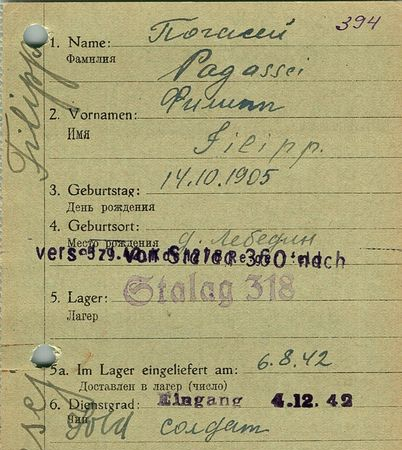 394
1. Name: Погасей
Фамилия
Pagassei
Филипп
2. Vornamen:
Имя
Filipp.
3. Geburtstag: 14.10.1905
День рождения
4. Geburtsort: д. Лебедин
Место рождения
vers von Stalag 360 nach
5. Lager: Stalag 318
Лагер
5a. Im Lager eingeliefert am: 6.8.42
Доставлен в лагер (число)
6. Dienstgrad: Eingang 4.12.42
Чин Sold солдат
Filipp